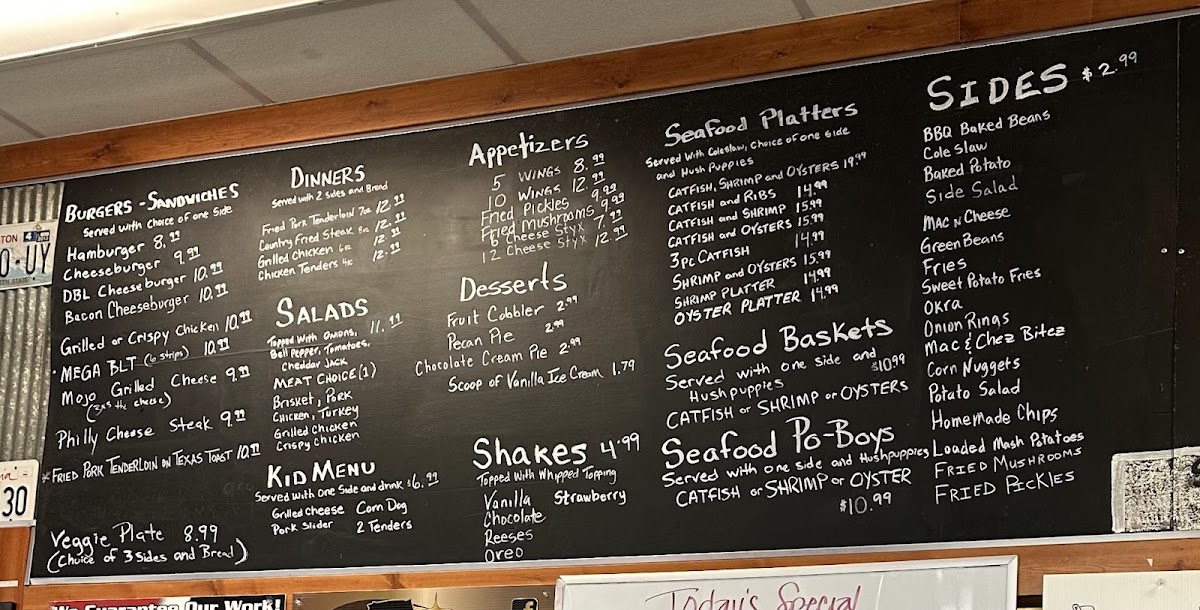 BURGERS - SANDWICHES
Served with choice of one Side
Hamburger 8.99
Cheeseburger 9.99
DBL Cheeseburger 10.99
Bacon Cheeseburger 10.99
Grilled or Crispy Chicken 10.99
• MEGA BLT (6 strips) 10.99
Mojo Grilled Cheese 9.99
(2xs the cheese)
Philly Cheese Steak 9.99
* FRIED PORK TENDERLOIN ON TEXAS TOAST 10.99
Veggie Plate 8.99
(Choice of 3 Sides and Bread)
DINNERS
Served with 2 sides and Bread
Fried Pork Tenderloin 7oz 12.99
Country Fried Steak 8oz 12.99
Grilled Chicken 6oz 12.99
Chicken Tenders 4pc 12.99
SALADS
Topped with Onions, 11.99
Bell Pepper, Tomatoes,
Cheddar JACK
MEAT CHOICE (1)
Brisket, Pork
Chicken, Turkey
Grilled Chicken
Crispy Chicken
KID MENU
Served with One Side and drink $6.99
Grilled Cheese Corn Dog
Pork Slider 2 Tenders
Appetizers
5 WINGS 8.99
10 WINGS 12.99
Fried Pickles 9.99
Fried Mushrooms 9.99
6 Cheese Styx 7.99
12 Cheese Styx 12.99
Desserts
Fruit Cobbler 2.99
Pecan Pie 2.99
Chocolate Cream Pie 2.99
Scoop of Vanilla Ice Cream 1.79
Shakes 4.99
Topped With Whipped Topping
Vanilla Strawberry
Chocolate
Reeses
Oreo
Seafood Platters
Served With Coleslaw, Choice of one side
and Hush Puppies
CATFISH, SHRIMP and OYSTERS 19.99
CATFISH and RIBS 14.99
CATFISH and SHRIMP 15.99
CATFISH and OYSTERS 15.99
3 pc CATFISH 14.99
SHRIMP and OYSTERS 15.99
SHRIMP PLATTER 14.99
OYSTER PLATTER 14.99
Seafood Baskets
Served with one Side and
Hushpuppies $10.99
CATFISH or SHRIMP or OYSTERS
Seafood Po-Boys
Served with one side and Hushpuppies
CATFISH or SHRIMP or OYSTER
$10.99
SIDES $2.99
BBQ Baked Beans
Cole Slaw
Baked Potato
Side Salad
Mac N Cheese
Green Beans
Fries
Sweet Potato Fries
Okra
Onion Rings
Mac & Chez Bitez
Corn Nuggets
Potato Salad
Homemade Chips
Loaded Mash Potatoes
FRIED MUSHROOMS
FRIED PICKLES
We Guarantee Our Work!
Today's Special